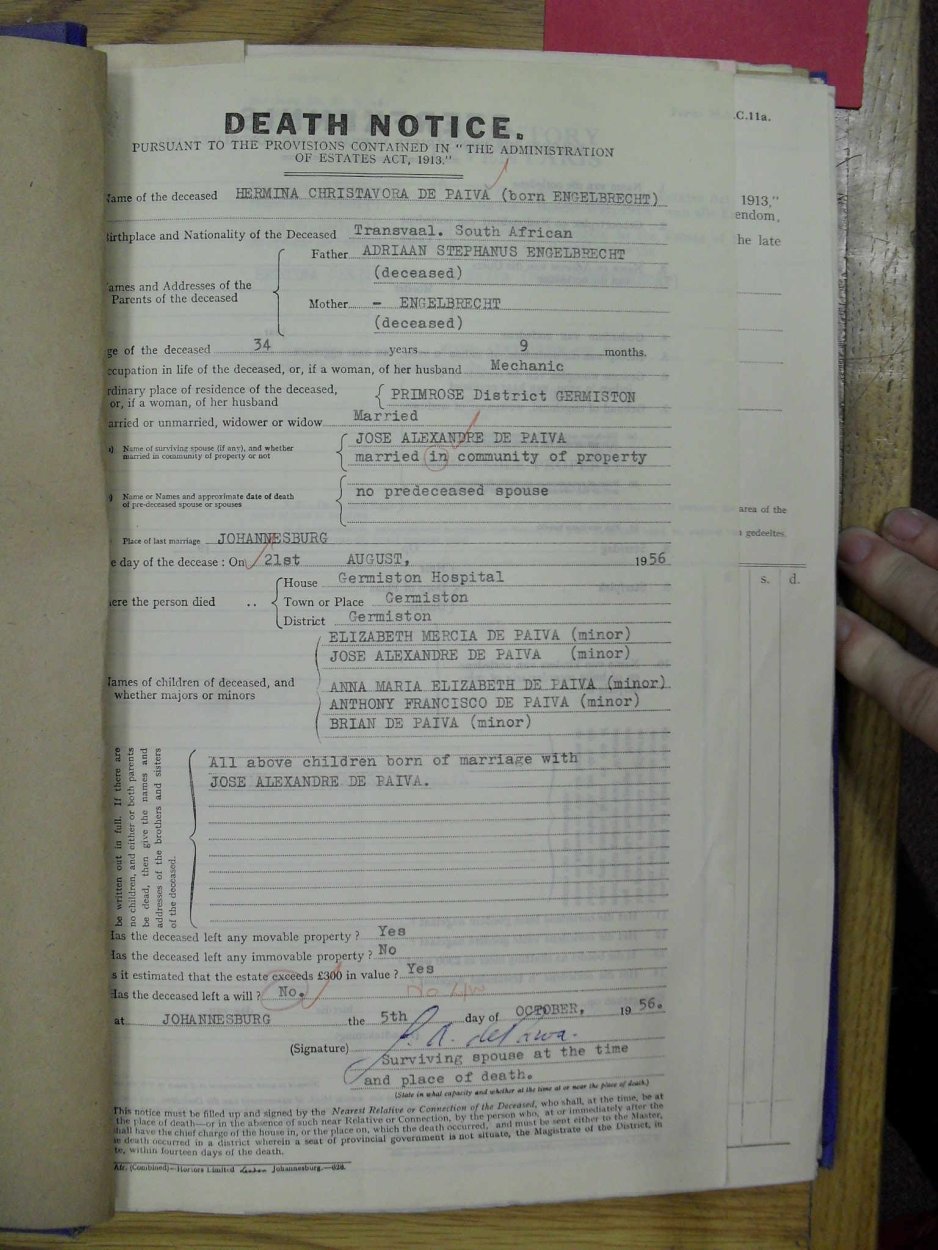 DEATH NOTICE.
PURSUANT TO THE PROVISIONS CONTAINED IN "THE ADMINISTRATION
OF ESTATES ACT, 1913."
C.11a.
1913,"
endom,
he late
ame of the deceased HERMINA CHRISTAVORA DE PAIVA (born ENGELBRECHT)
irthplace and Nationality of the Deceased Transvaal. South African
ames and Addresses of the
Parents of the deceased
Father ADRIAAN STEPHANUS ENGELBRECHT
(deceased)
Mother - ENGELBRECHT
(deceased)
ge of the deceased 34 years 9 months.
ccupation in life of the deceased, or, if a woman, of her husband Mechanic
rdinary place of residence of the deceased,
or, if a woman, of her husband
PRIMROSE District GERMISTON
arried or unmarried, widower or widow Married
) Name of surviving spouse (if any), and whether
married in community of property or not
JOSE ALEXANDRE DE PAIVA
married in community of property
) Name or Names and approximate date of death
of pre-deceased spouse or spouses
no predeceased spouse
area of the
gedeeltes.
Place of last marriage JOHANNESBURG
e day of the decease : On 21st AUGUST, 1956
s. d.
ere the person died ..
House Germiston Hospital
Town or Place Germiston
District Germiston
ames of children of deceased, and
whether majors or minors
ELIZABETH MERCIA DE PAIVA (minor)
JOSE ALEXANDRE DE PAIVA (minor)
ANNA MARIA ELIZABETH DE PAIVA (minor)
ANTHONY FRANCISCO DE PAIVA (minor)
BRIAN DE PAIVA (minor)
be written out in full. If there are
no children, and either or both parents
be dead, then give the names and
addresses of the brothers and sisters
of the deceased.
All above children born of marriage with
JOSE ALEXANDRE DE PAIVA.
Has the deceased left any movable property ? Yes
Has the deceased left any immovable property ? No
s it estimated that the estate exceeds £300 in value ? Yes
Has the deceased left a will ? No.
at JOHANNESBURG the 5th day of OCTOBER, 1956.
(Signature) J. A. de Paiva.
Surviving spouse at the time
and place of death.
(State in what capacity and whether at the time at or near the place of death)
This notice must be filled up and signed by the Nearest Relative or Connection of the Deceased, who shall, at the time, be at
the place of death—or in the absence of such near Relative or Connection, by the person who, at or immediately after the
hall have the chief charge of the house in, or the place on, which the death occurred, and must be sent either to the Master,
e death occurred in a district wherein a seat of provincial government is not situate, the Magistrate of the District, in
te, within fourteen days of the death.
Afr. (Combined)—Hortors Limited Johannesburg.